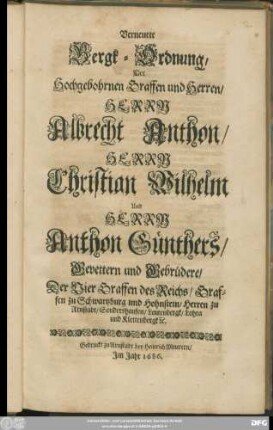 Verneuerte
Bergk-Ordnung/
Der
Hochgebohrnen Graffen und Herren/
HERRN
Albrecht Anthon/
HERRN
Christian Wilhelm
Und
HERRN
Anthon Günthers/
Gevettern und Gebrüdere/
Der Vier Graffen des Reichs/ Graf-
fen zu Schwartzburg und Hohnstein/ Herren zu
Arnstadt/ Sondershausen/ Leutenbergk/ Lohra
und Klettenbergk ꝛc.
Gedruckt zu Arnstadt bey Heinrich
Im Jahr 1686.
DFG